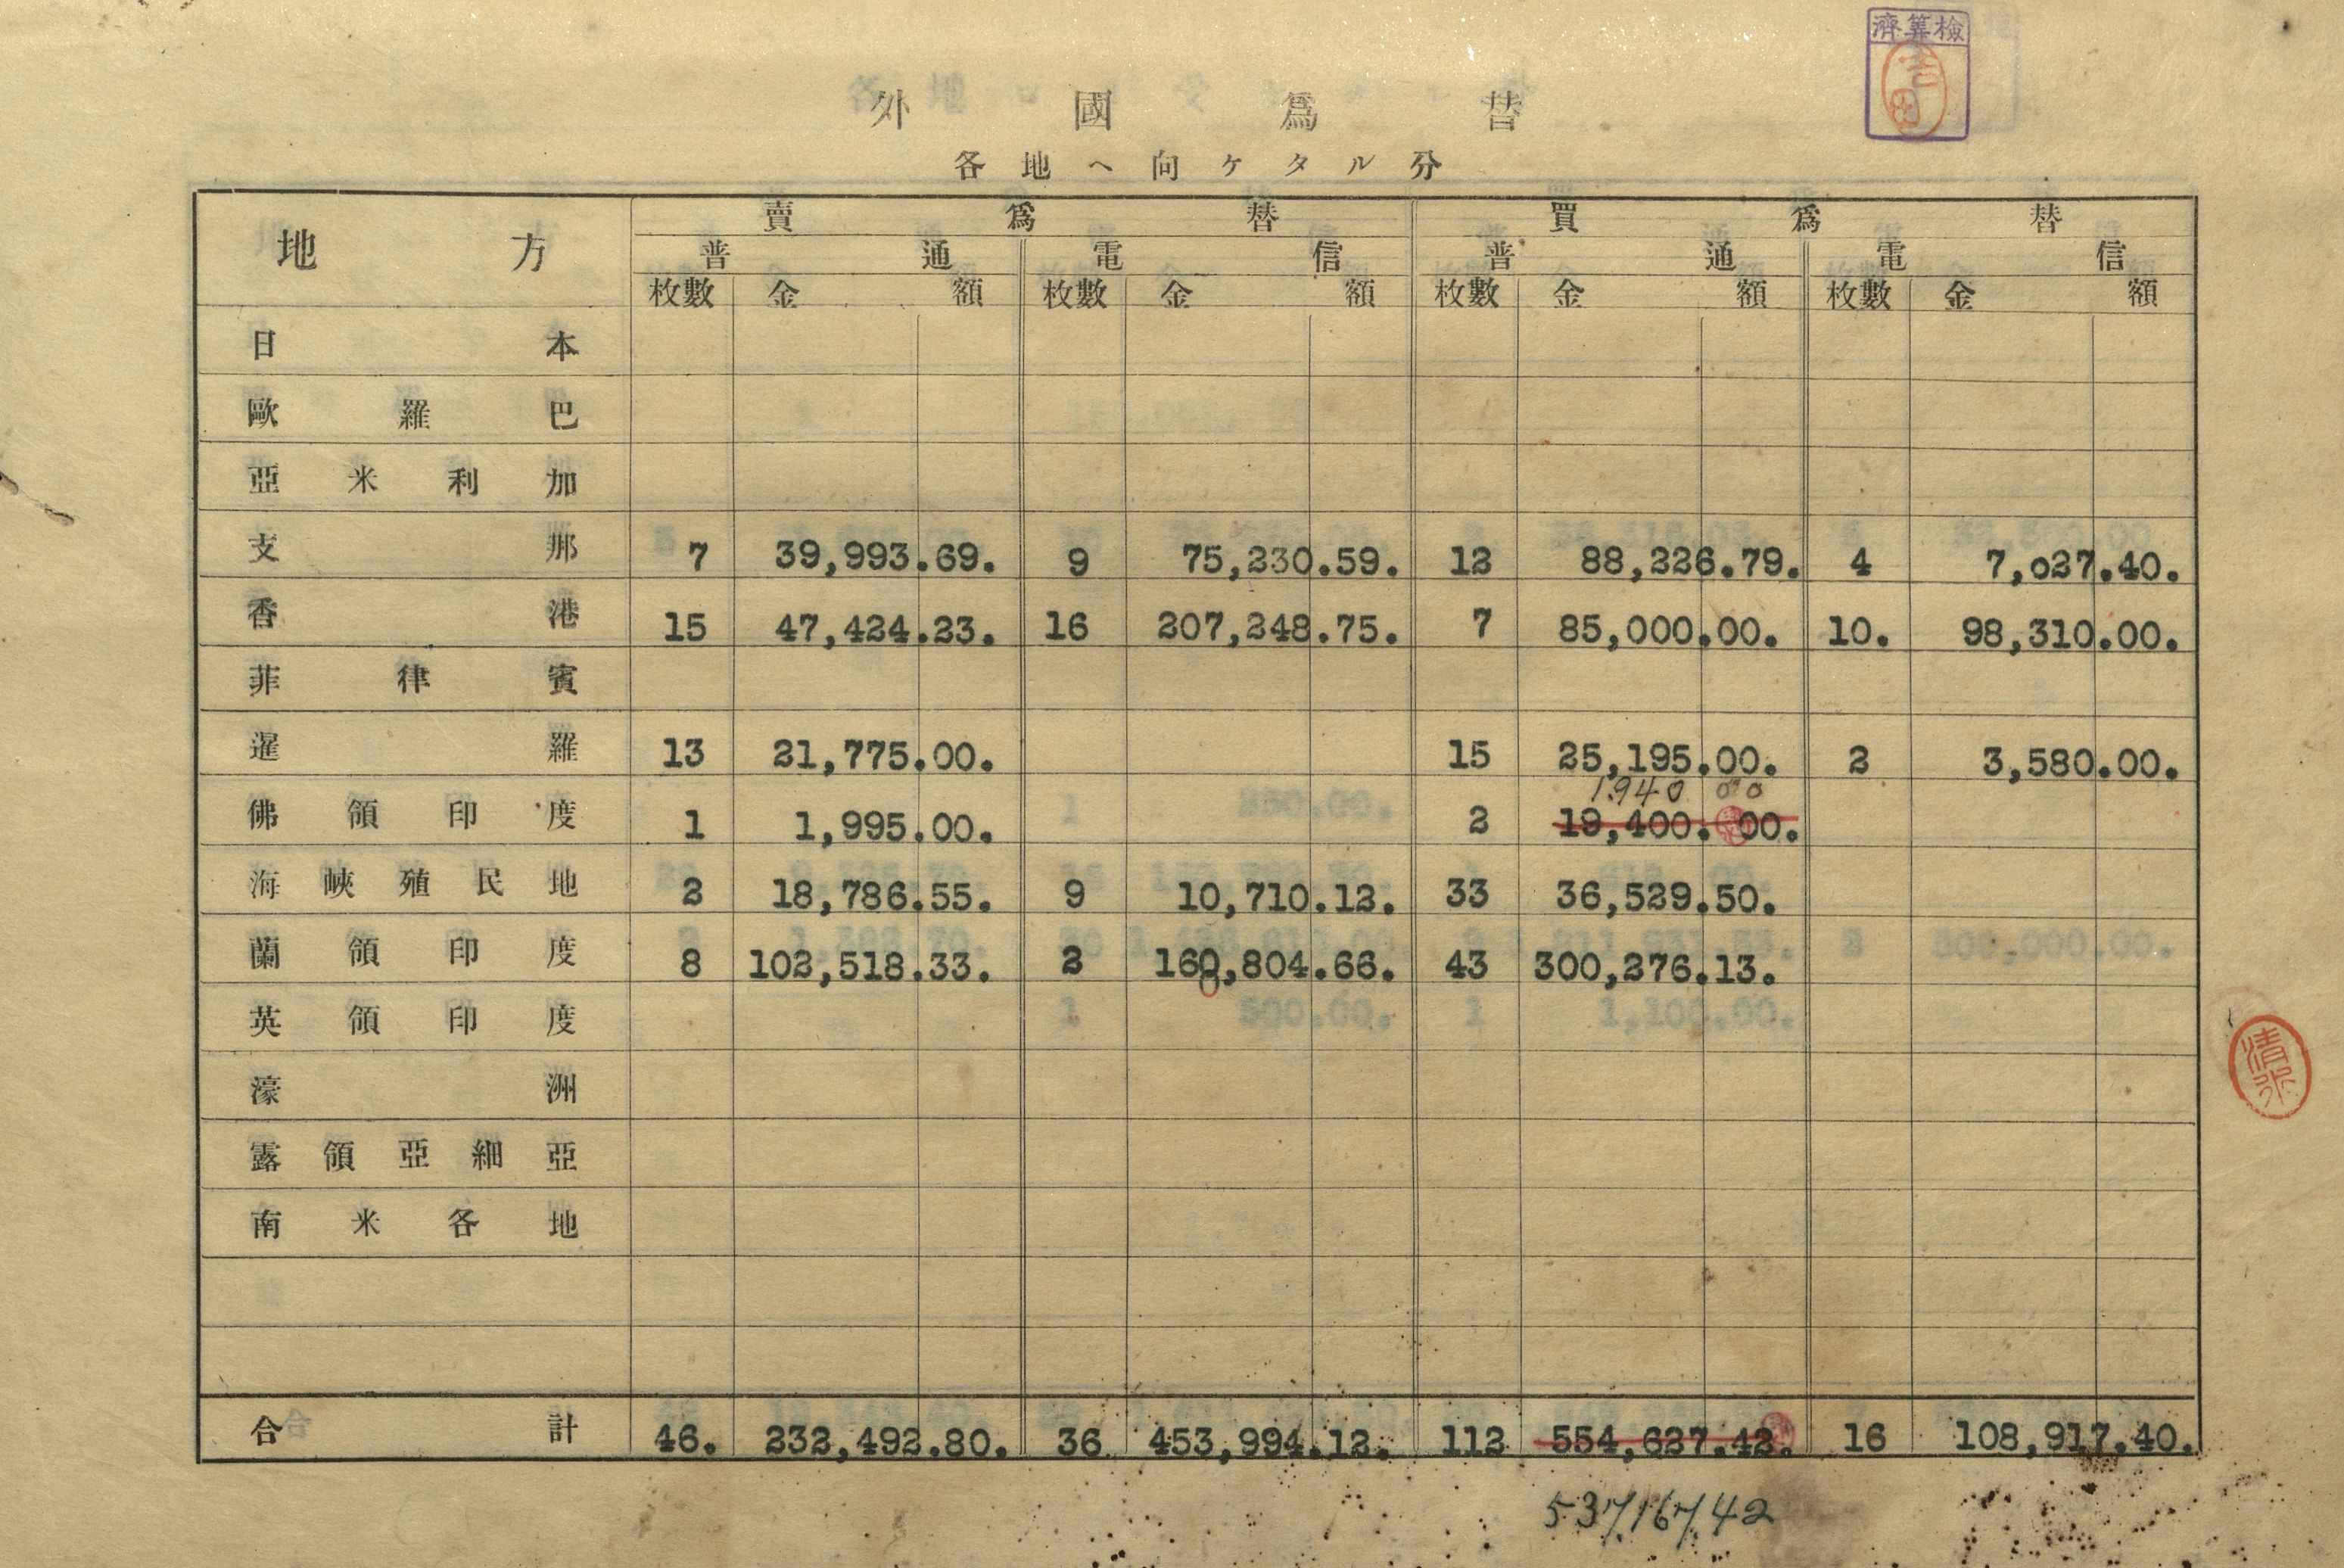 檢算濟
吉田
外國爲替
各地ヘ向ケタル分
地方 賣爲替 買爲替
普通 電信 普通 電信
枚數 金額 枚數 金額 枚數 金額 枚數 金額
日本
歐羅巴
亞米利加
支那 7 39,993.69. 9 75,230.59. 12 88,226.79. 4 7,027.40.
香港 15 47,424.23. 16 207,248.75. 7 85,000.00. 10. 98,310.00.
菲律賓
暹羅 13 21,775.00. 15 25,195.00. 2 3,580.00.
1.940 00
佛領印度 1 1,995.00. 2 19,400.00.
海峽殖民地 2 18,786.55. 9 10,710.12. 33 36,529.50.
蘭領印度 8 102,518.33. 2 160,804.66. 43 300,276.13.
0
英領印度
濠洲
露領亞細亞
南米各地
合計 46. 232,492.80. 36 453,994.12. 112 554,627.42. 16 108,917.40.
537,167.42
清水